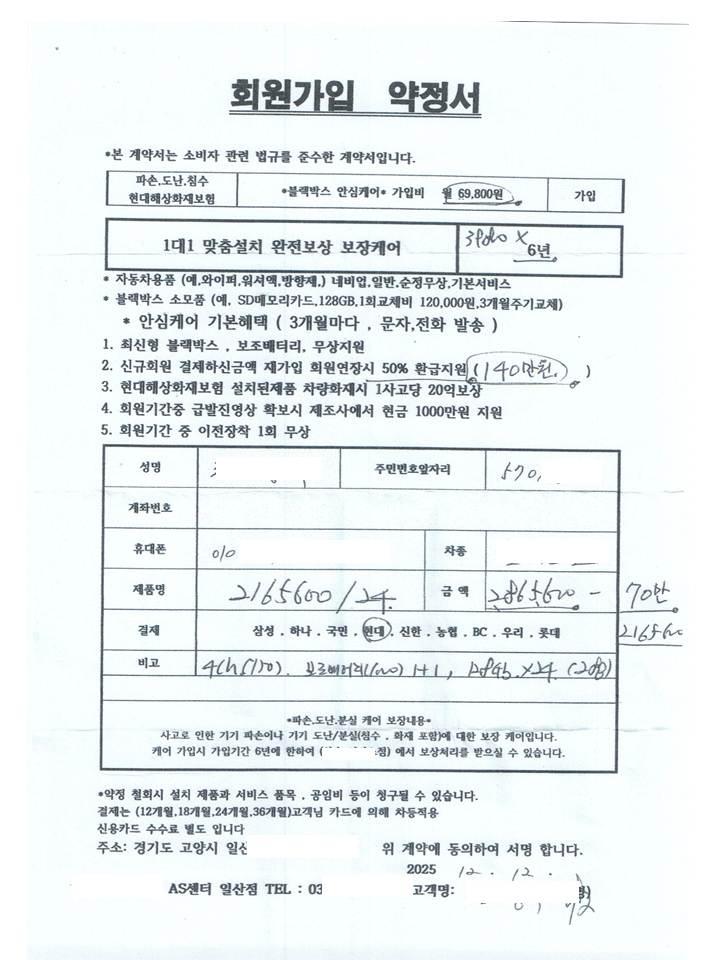 회원가입 약정서
*본 계약서는 소비자 관련 법규를 준수한 계약서입니다.
파손,도난,침수
현대해상화재보험
*블랙박스 안심케어* 가입비 월 69,800원
가입
1대1 맞춤설치 완전보상 보장케어
6년
* 자동차용품 (예,와이퍼,워셔액,방향제,) 네비업,일반,순정무상,기본서비스
* 블랙박스 소모품 (예, SD메모리카드,128GB,1회교체비 120,000원,3개월주기교체)
* 안심케어 기본혜택 ( 3개월마다 , 문자,전화 발송 )
1. 최신형 블랙박스 , 보조배터리, 무상지원
2. 신규회원 결제하신금액 재가입 회원연장시 50% 환급지원 (140만원.)
3. 현대해상화재보험 설치된제품 차량화재시 1사고당 20억보상
4. 회원기간중 급발진영상 확보시 제조사에서 현금 1000만원 지원
5. 회원기간 중 이전장착 1회 무상
성명 주민번호앞자리 570,
계좌번호
휴대폰 010 차종
제품명 2165600/24 금 액 2865600 - 70만
결재 삼성 . 하나 . 국민 . 현대 . 신한 . 농협 . BC . 우리 . 롯데 2165600
비고 1+1, 128Gb x24
*파손,도난,분실 케어 보장내용*
사고로 인한 기기 파손이나 기기 도난/분실(침수 . 화재 포함)에 대한 보장 케어입니다.
케어 가입시 가입기간 6년에 한하여 ( 점) 에서 보상처리를 받으실 수 있습니다.
*약정 철회시 설치 제품과 서비스 품목 . 공임비 등이 청구될 수 있습니다.
결제는 (12개월,18개월,24개월,36개월)고객님 카드에 의해 차등적용
신용카드 수수료 별도 입니다
주소: 경기도 고양시 일산 위 계약에 동의하여 서명 합니다.
2025 12 . 12 .
AS센터 일산점 TEL : 03 고객명: